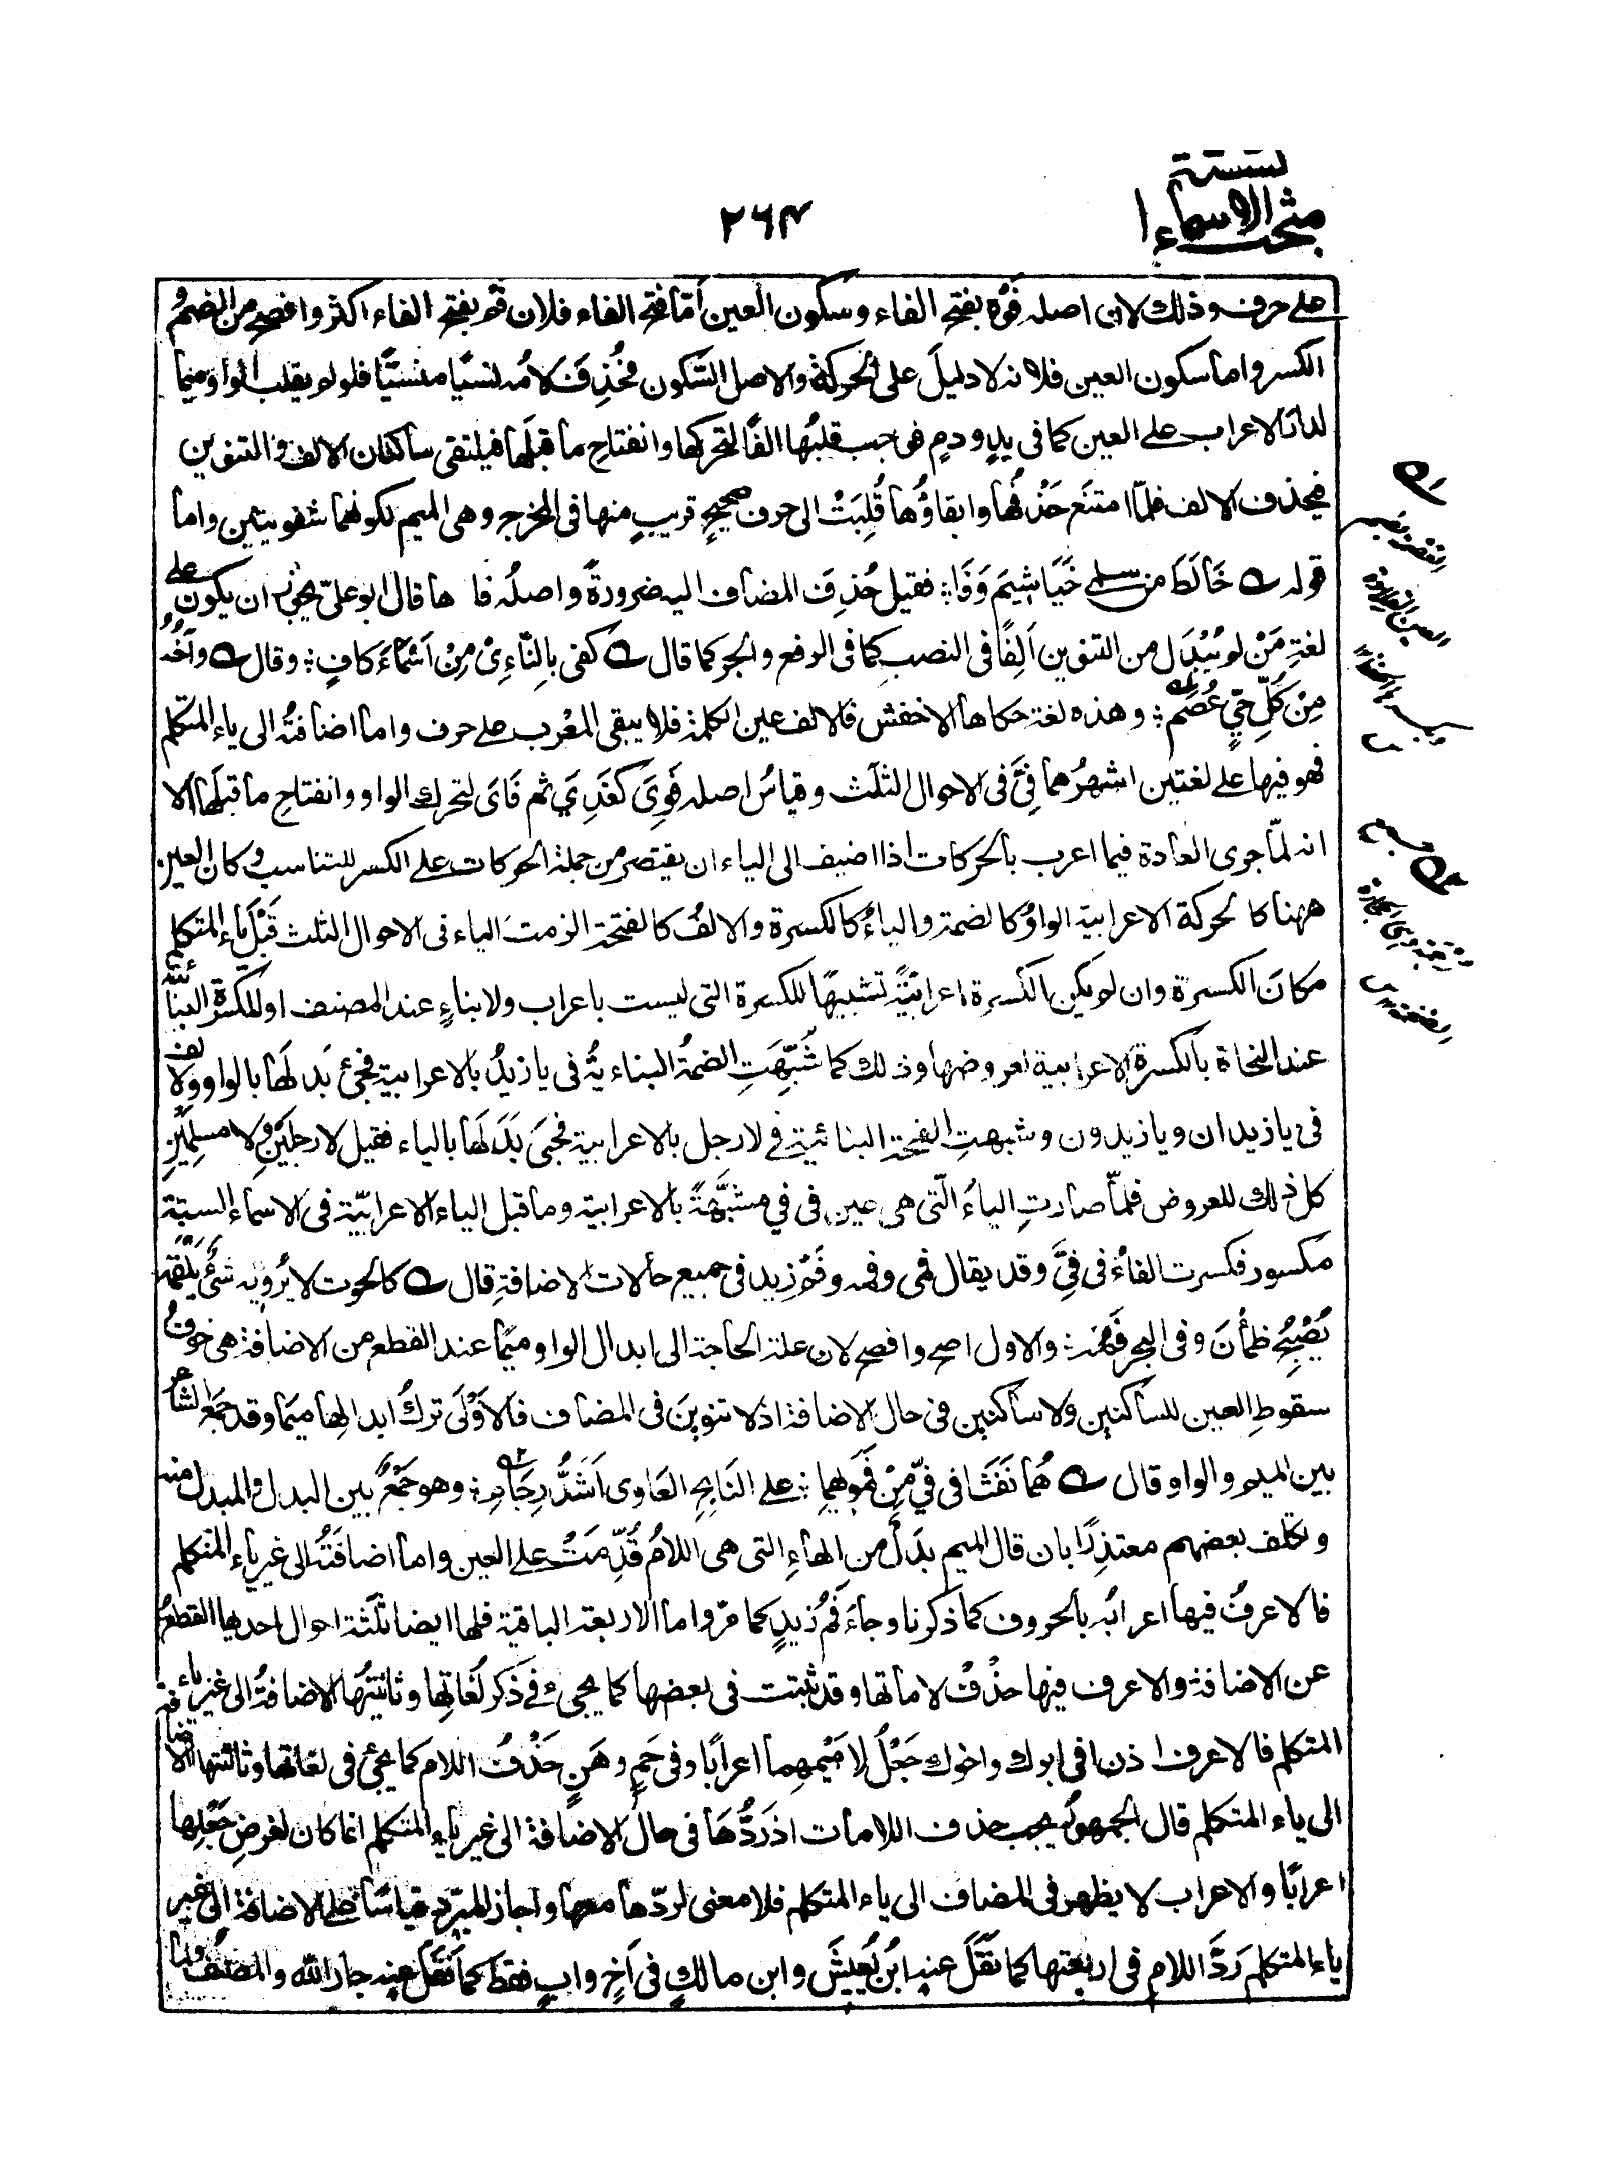 مبحث الاسماء الستة
٢٦٤
على حرف وذلك لان اصله فَوْه بفتح الفاء وسكون العين اَمّا فتح الفاء فلان فَم بفتح الفاء اكثر وافصح من الضم و
الكسر واما سكون العين فلانه لا دليلَ على الحركة والاصل السّكون فحُذِفَتْ لامُه نسيًا منسيًّا فلو لم يقلب الواو ميمًا
لدار الاعراب على العين كما فى يدٍ ودمٍ فوجب قلبُها الفًا لتحركها وانفتاحِ ما قبلها فيلتقى ساكنان الالف والتنوين
فيحذف الالف فلمّا امتنع حَذْفُها وابقاؤُها قُلِبَتْ الى حرف صحيحٍ قريبٍ منها فى المخرج وهى الميم لكونهما شفويتين واما
قوله خَالَطَ من سلمى خَيَاشِيمَ وَفَا فقيل حُذِفَ المضاف اليه ضرورةً واصلُه فاها قال ابو علىّ يجوز ان يكون على
لغةِ مَنْ لم يُبْدَل من التنوين اَلِفًا فى النصب كما فى الرفع والجر كما قال كفى بالنّاءِىْ مِنْ اَسْمَاءَ كافٍ وقال وآخُذُ
مِنْ كُلِّ حَيٍّ عُصُمْ وهذه لغة حكاها الاخفش فالالف عين الكلمة فلا يبقى المعْرب على حرف واما اضافتُه الى ياء المتكلم
فهو فيها على لغتين اشهرُهما فِيَّ فى الاحوال الثلث وقياسُ اصله فَوِىَ كغَدِى ثم فَاىَ لتحرك الواو وانفتاحِ ما قبلها الا
انه لمّا جرى العادة فيما اعرب بالحركات اذا اضيف الى الياء ان يقتصر من جملة الحركات على الكسر للتناسب وكان العين
ههنا كالحركة الاعرابية الواوُ كالضمة والياءُ كالكسرة والالفُ كالفتحة الزمت الياء فى الاحوال الثلث قَبْلَ ياءِ المتكلم
مكانَ الكسرة وان لم يكن الكَسرة اعرابيَّةً تشبيهًا للكسرة التى ليست باعراب ولا بناءٍ عند المصنف او للكسرة البنائيّة
عند النحاة بالكسرة الاعرابية لعروضها وذلك كما شُبِّهَتِ الضمةُ البناءيةُ فى يا زيدُ بالاعرابية فجئ بَدلَها بالواو والالف
فى يا زيدان ويا زيدون وشبهتِ الفتحة البنائية فى لا رجل بالاعرابية فجىَ بَدَلَها بالياء فقيل لا رجلَيْنِ ولا مسلِمِيْنَ
كل ذلك للعروض فلمّا صارتِ الياءُ الّتى هى عين فى فيّ مشبَّهةً بالاعرابية وما قبل الياء الاعرابيّة فى الاسماء الستة
مكسور فكسرت الفاءُ فى فِيَّ وقد يقال فمى وفمه وفَمُ زيد فى جميع حالات الاضافةِ قال كالحوت لا يُروِيه شئٌ يَلْقَمُه
يُصْبِحُ ظمأنَ وفى البحر فَمُه والاول اصح وافصح لان علة الحاجة الى ابدال الواو ميمًا عند القطع من الاضافة هى خوفُ
سقوطِ العين للساكنين ولا ساكنين فى حال الاضافة اذ لا تنوينَ فى المضاف فالاَوْلَى تركُ ابدالِها ميمًا وقد جَمَعَ الشاعر
بين الميم والواو قال هُما نَفَثَا فى فيّ مِنْ فَمَوَيْهِما على النَابحِ العَاوى اَشَدُّ رِجَامِ وهو جَمْعٌ بين البدل والمبدل منه
وتكلف بعضهم معتذِرًا بان قال الميم بدَلٌ من الهاءِ التى هى اللامُ قُدِّمَتْ على العين واما اضافَتُه الى غير ياء المتكلم
فالاعرفُ فيها اعرابُه بالحروف كما ذكرنا وجاءَ فَمُ زيدٍ كما مرّ واما الاربعة الباقية فلها ايضا ثلثة احوال احدها القطعُ
عن الاضافة والاعرف فيها حذْفُ لاماتها وقد ثبتت فى بعضها كما يجئ فى ذكر لُغَاتِها وثانيتُها الاضافةُ الى غير ياء
المتكلم فالاعرف اذن فى ابوك واخوك جَعْلُ لامَيْهِما اعرابًا وفى حَمٍ وهَنٍ حَذْفُ اللام كما يجئ فى لغاتها وثالثتها الاضافة
الى ياء المتكلم قال الجمهورُ يجب حذف اللامات اذ رَدُّهَا فى حال الاضافة الى غير ياء المتكلم انما كان لغرضِ جَعْلِها
اعرابًا والاعراب لا يظهر فى المضاف الى ياء المتكلم فلا معنى لردّها معها واجاز المبرّد قياسًا على الاضافة الى غير
ياء المتكلم رَدَّ اللام فى اربعتها كما نَقَلَ عنه ابنُ يَعِيشَ وابن مالكٍ فى اَخٍ وابٍ فقط كما نَقَلَ عنه جار اللّٰه والمصنفُ